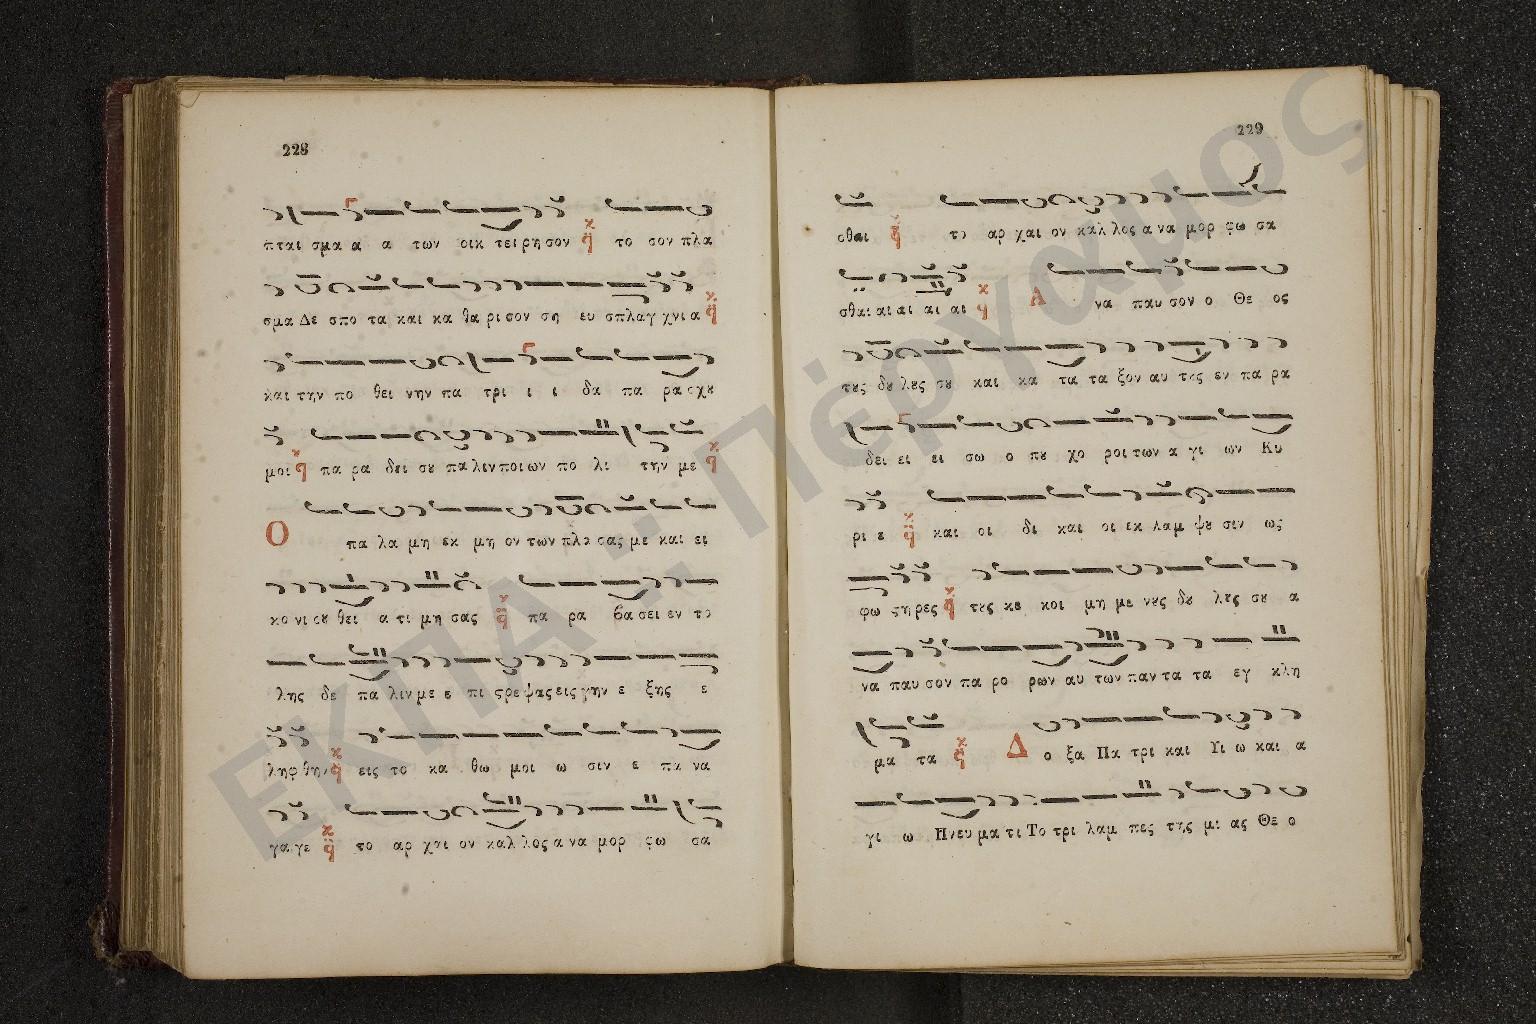 228
πται σμα α α των οικ τει ρη σον το σον πλα
σμα Δε σπο τα και κα θα ρι σον ση ευ σπλαγ χνι α
και την πο θει νην πα τρι ι ι δα πα ρα σχȣ
μοι πα ρα δει σȣ πα λιν ποι ων πο λι την με
Ο πα λα μη εκ μη ον των πλα σας με και ει
κο νι σȣ θει α τι μη σας πα ρα βα σει εν το
λης δε πα λιν με ε πι ςρε ψας εις γην ε ξης ε
ληφ θην εις το κα θω μοι ω σιν ε πα να
γα γε το αρ χαι ον καλ λος α να μορ φω σα
229
σθαι το αρ χαι ον καλ λος α να μορ φω σα
σθαι αι αι αι αι Α να παυ σον ο Θε ος
τȣς δȣ λȣς σȣ και κα τα τα ξον αυ τȣς εν πα ρα
δει ει ει σω ο πȣ χο ροι των α γι ων Κυ
ρι ε και οι δι και οι εκ λαμ ψȣ σιν ως
φω ςη ρες τȣς κε κοι μη με νȣς δȣ λȣς σȣ α
να παυ σον πα ρο ρων αυ των παν τα τα εγ κλη
μα τα Δ ο ξα Πα τρι και Υι ω και α
γι ω Πνευ μα τι Το τρι λαμ πες της μι ας Θε ο
ΕΚΠΑ :: Πέργαμος